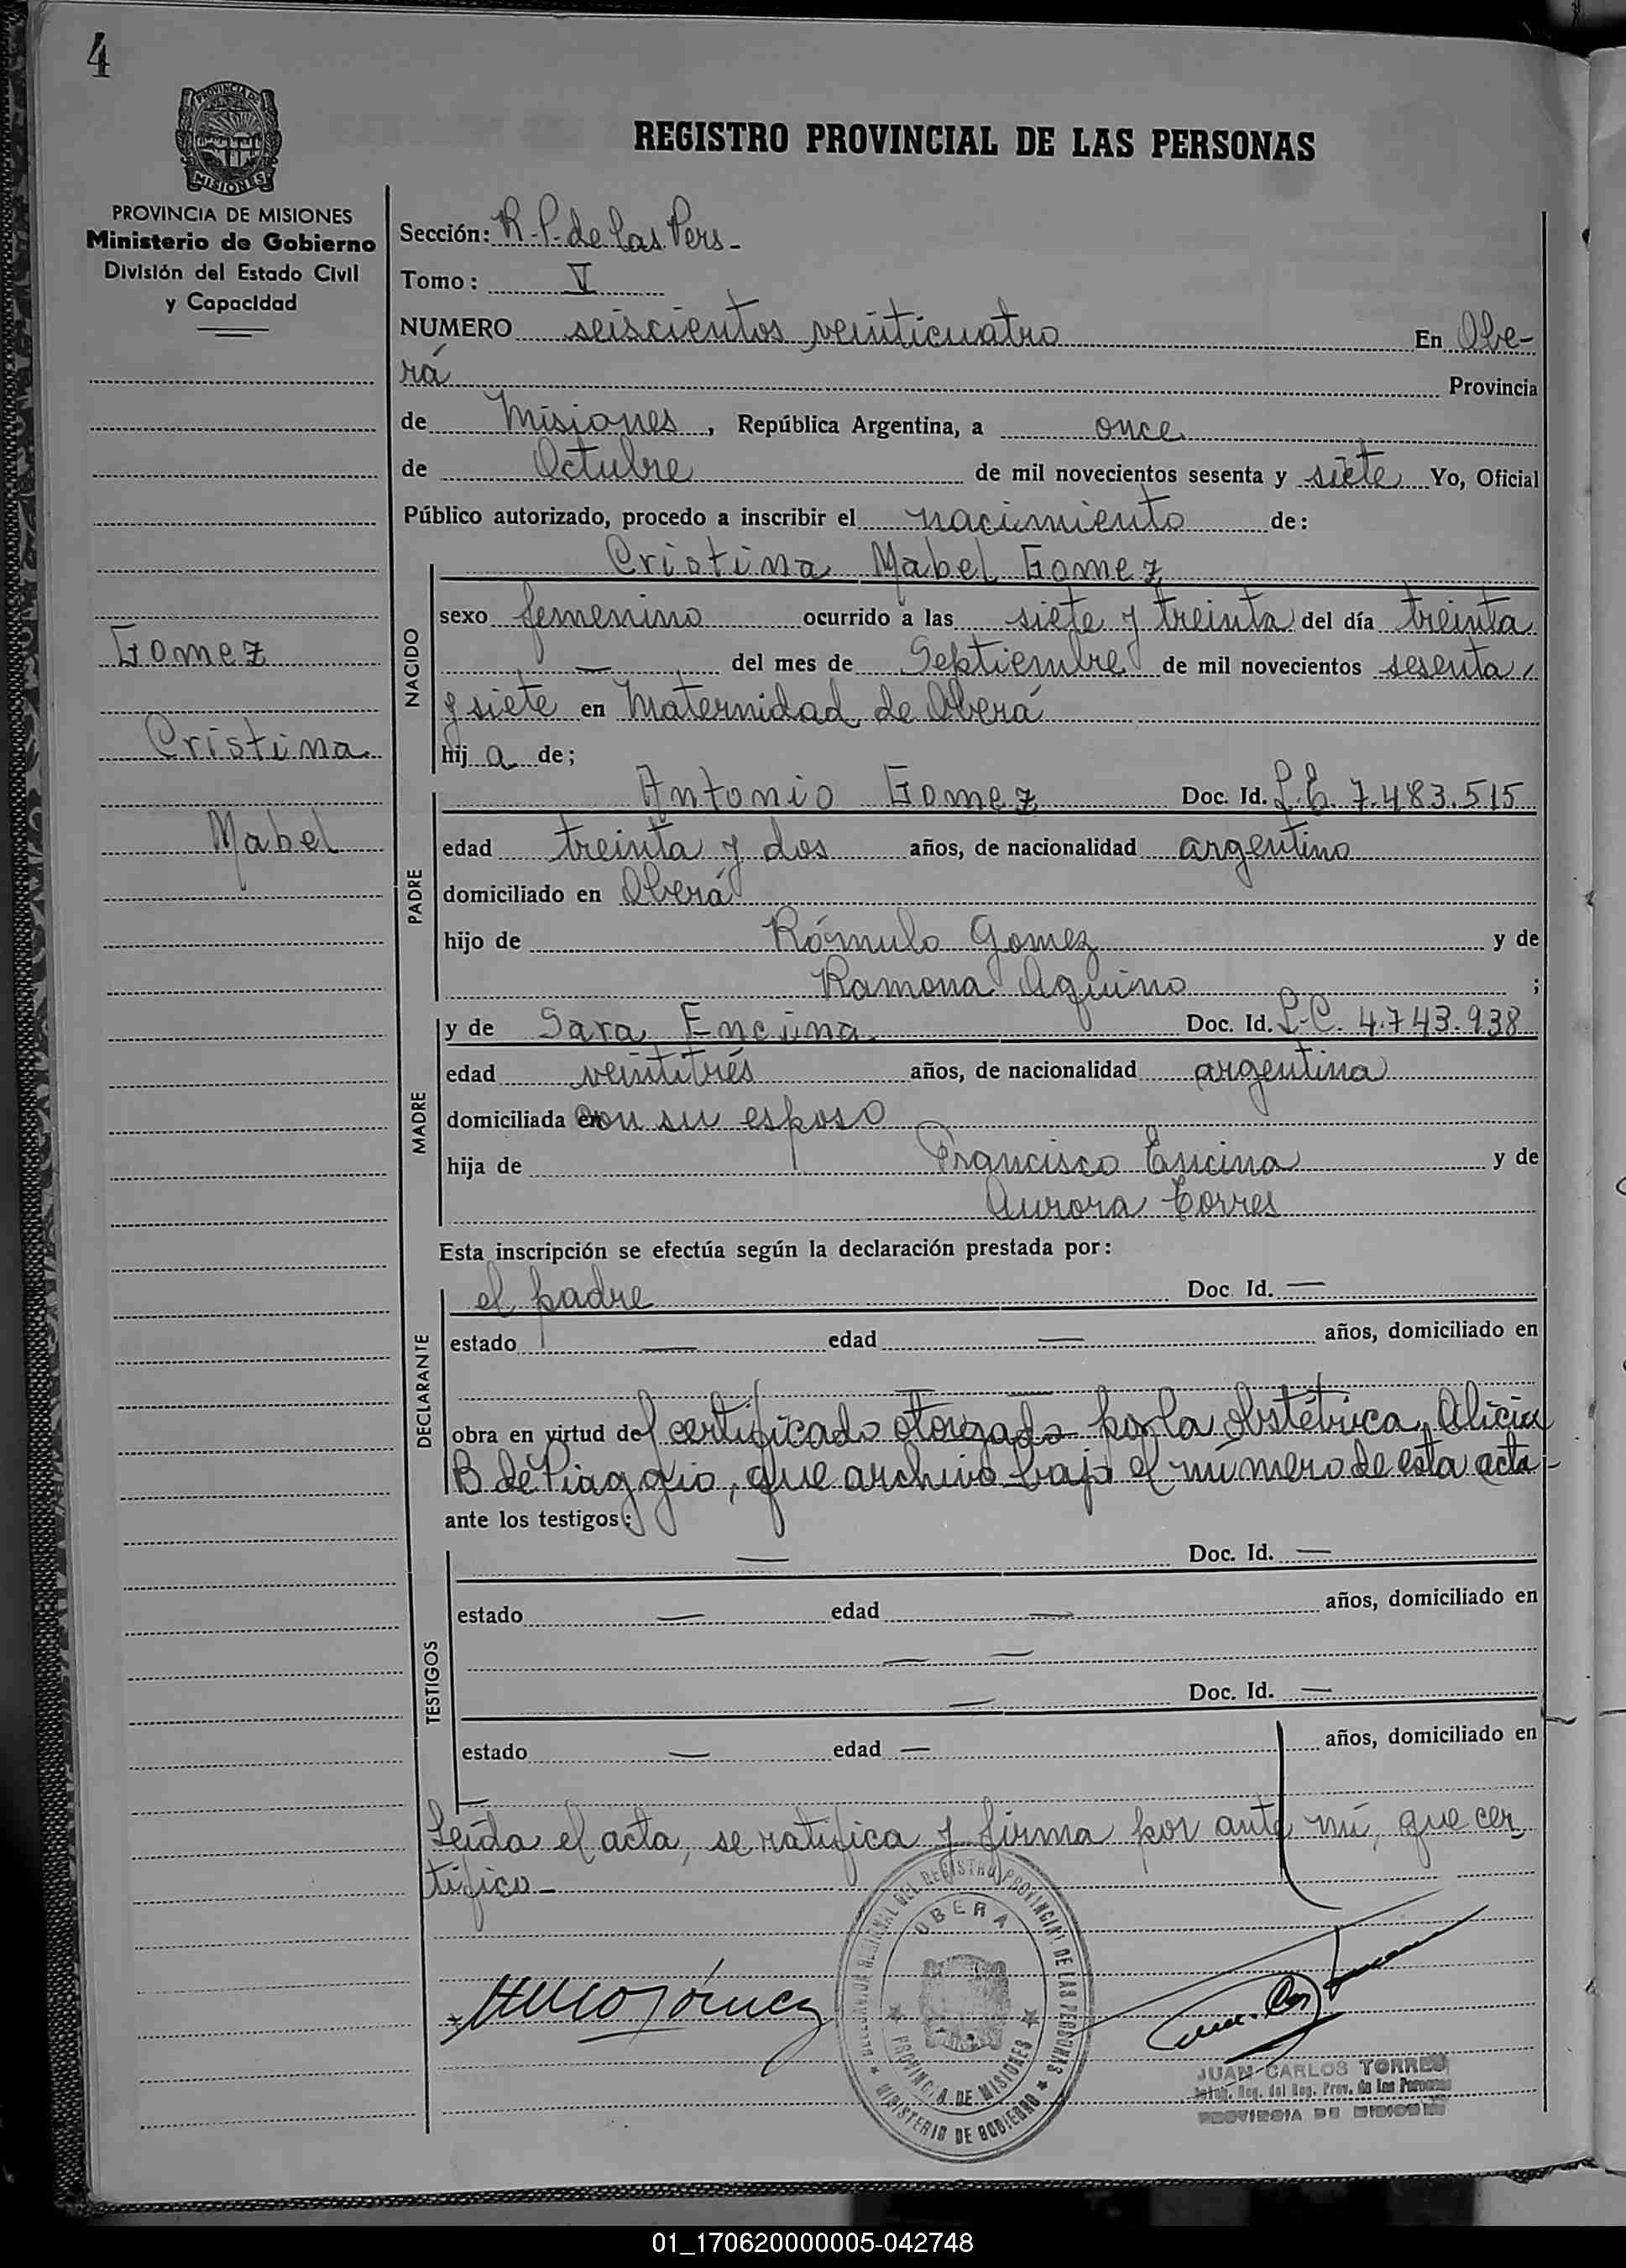 4
PROVINCIA DE
MISIONES
REGISTRO PROVINCIAL DE LAS PERSONAS
PROVINCIA DE MISIONES
Ministerio de Gobierno
División del Estado Civil
y Capacidad
Sección: R.P. de las Pers-
Tomo: V
NUMERO seiscientos veinticuatro En Obe-
rá Provincia
de Misiones, República Argentina, a once
de Octubre de mil novecientos sesenta y siete Yo, Oficial
Público autorizado, procedo a inscribir el nacimiento de:
Cristina Mabel Gomez
NACIDO
sexo femenino ocurrido a las siete y treinta del día treinta
— del mes de Septiembre de mil novecientos sesenta
y siete en Maternidad de Oberá
hija de;
Gomez
Cristina
Mabel
PADRE
Antonio Gomez Doc. Id. L.E. 7.483.515
edad treinta y dos años, de nacionalidad argentino
domiciliado en Oberá
hijo de Rómulo Gomez y de
Ramona Aquino ;
MADRE
y de Sara Encina Doc. Id. L.C. 4.743.938
edad veintitrés años, de nacionalidad argentina
domiciliada en con su esposo
hija de Francisco Encina y de
Aurora Torres
Esta inscripción se efectúa según la declaración prestada por:
DECLARANTE
el padre Doc. Id. —
estado — edad — años, domiciliado en
— —
obra en virtud del certificado otorgado por la obstétrica, Alicia
B de Piaggio, que archivo bajo el número de esta acta-
ante los testigos:
TESTIGOS
— Doc. Id. —
estado — edad — años, domiciliado en
— —
— Doc. Id. —
estado — edad — años, domiciliado en
—
Leída el acta, se ratifica y firma por ante mí, que cer
tifico-
DELEGACION REGIONAL DEL REGISTRO PROVINCIAL DE LAS PERSONAS
OBERA
PROVINCIA DE MISIONES
MINISTERIO DE GOBIERNO
JUAN CARLOS TORRES
Reg. del Reg. Prov. de las Personas
PROVINCIA DE MISIONES
01_170620000005-042748